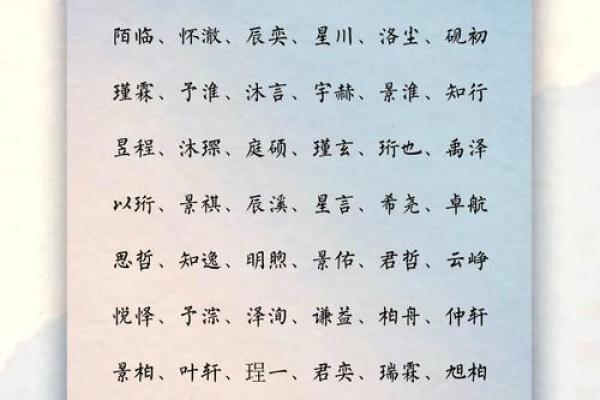 陌临、怀澈、辰奕、星川、洛尘、砚初
瑾霖、予淮、沐言、宇赫、景淮、知行
昱程、沐琛、庭硕、瑾玄、珩也、禹泽
以珩、景祺、辰溪、星言、希尧、卓航
思哲、知逸、明煦、景佑、君哲、云峥
悦怿、予淙、泽洵、谦益、柏舟、仲轩
景柏、叶轩、珵一、君奕、瑞霖、旭柏